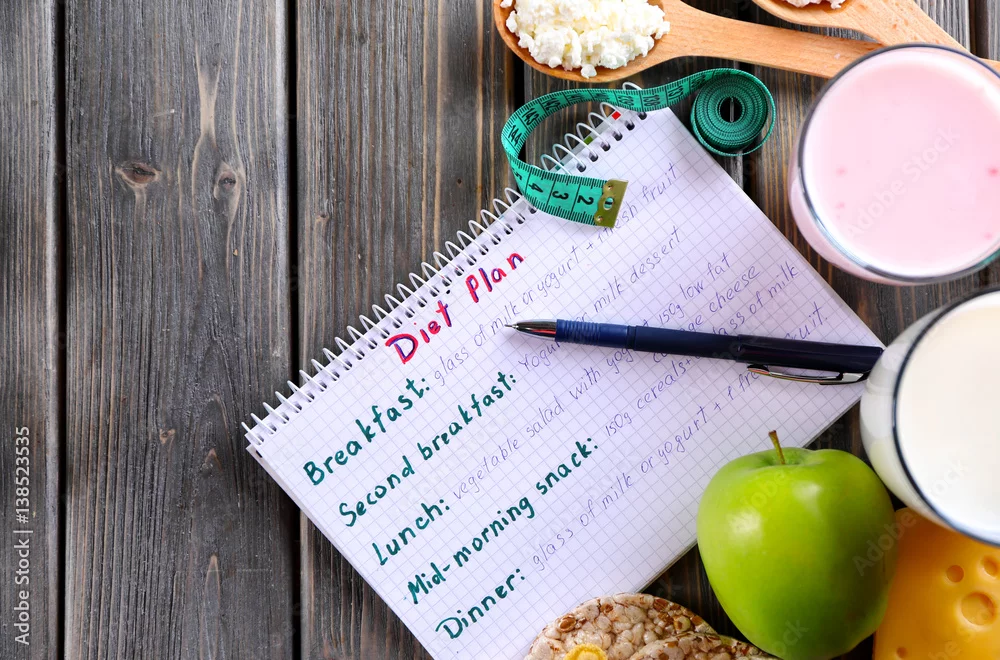 Diet Plan
Breakfast: glass of milk or yogurt + fresh fruit
Second breakfast: Yogurt or milk dessert
Lunch: vegetable salad with yog 150g low fat
cheese
Mid-morning snack: 150g cereals glass of milk
Dinner: glass of milk or yogurt + 1 fruit.
2
3
4
Adobe Stock | 138523535